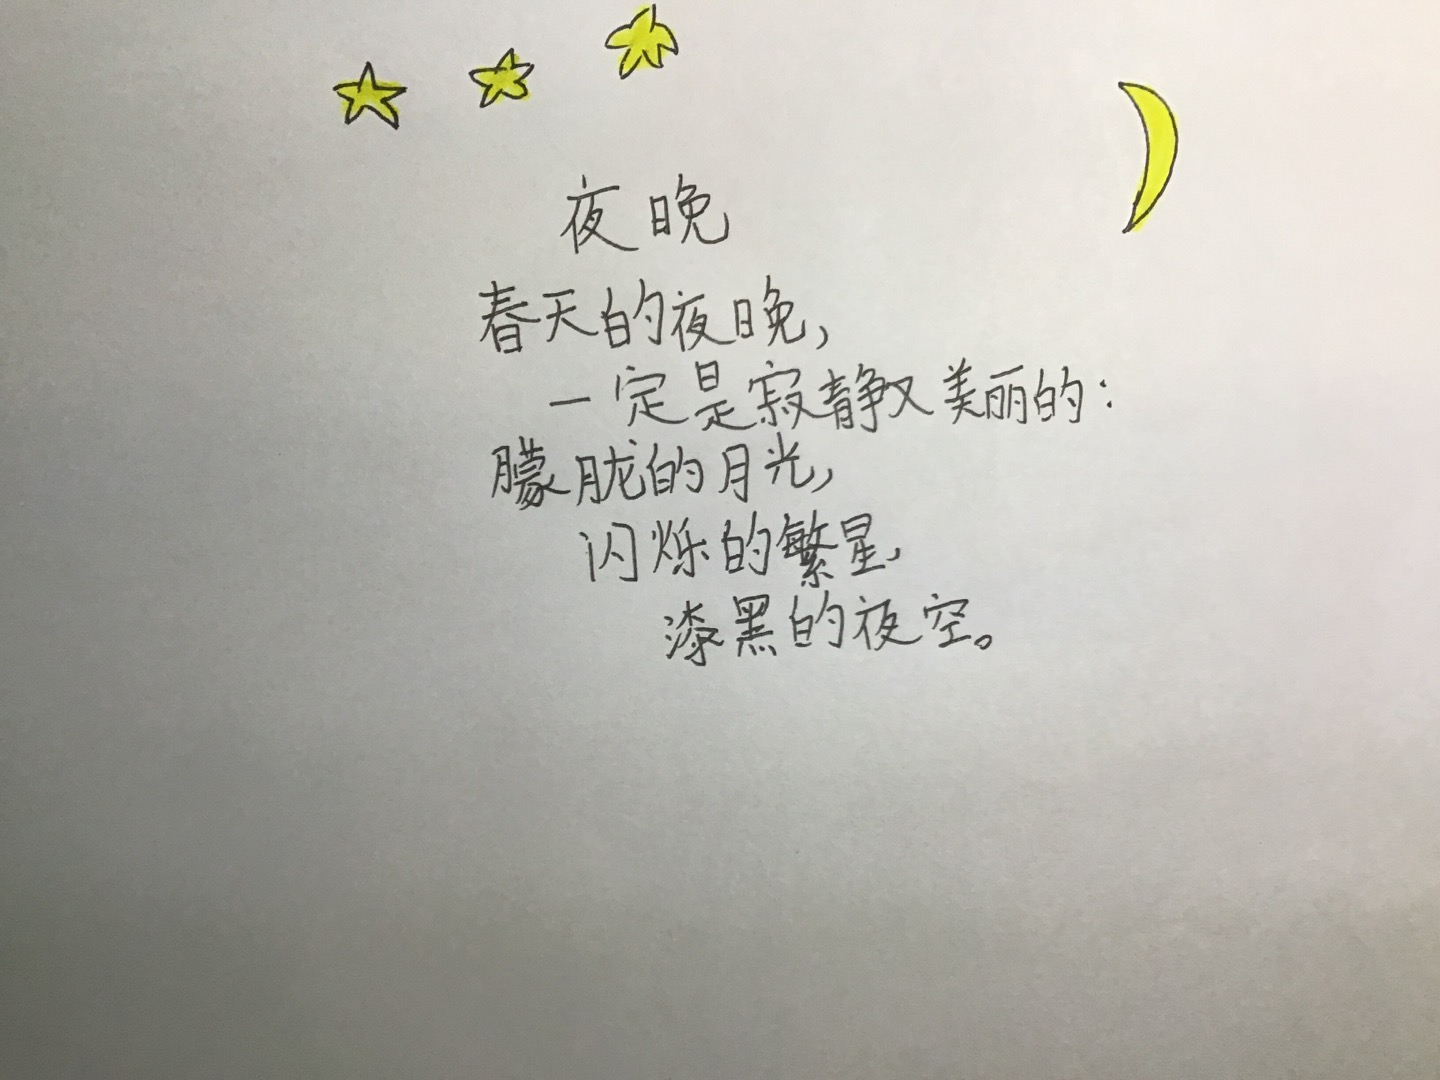 夜晚
春天的夜晚,
一定是寂静又美丽的:
朦胧的月光,
闪烁的繁星,
漆黑的夜空。